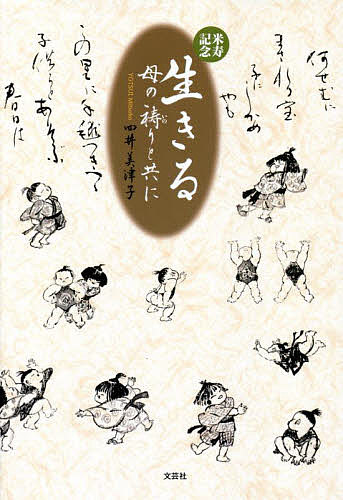 何せむに
まされる宝
子にしかめ
やも
米寿
記念
生きる
母の祷りと共に
YOTSUI Mitsuko
四井美津子
この里に手毬つきつゝ
子供らとあそぶ
春日は
文芸社